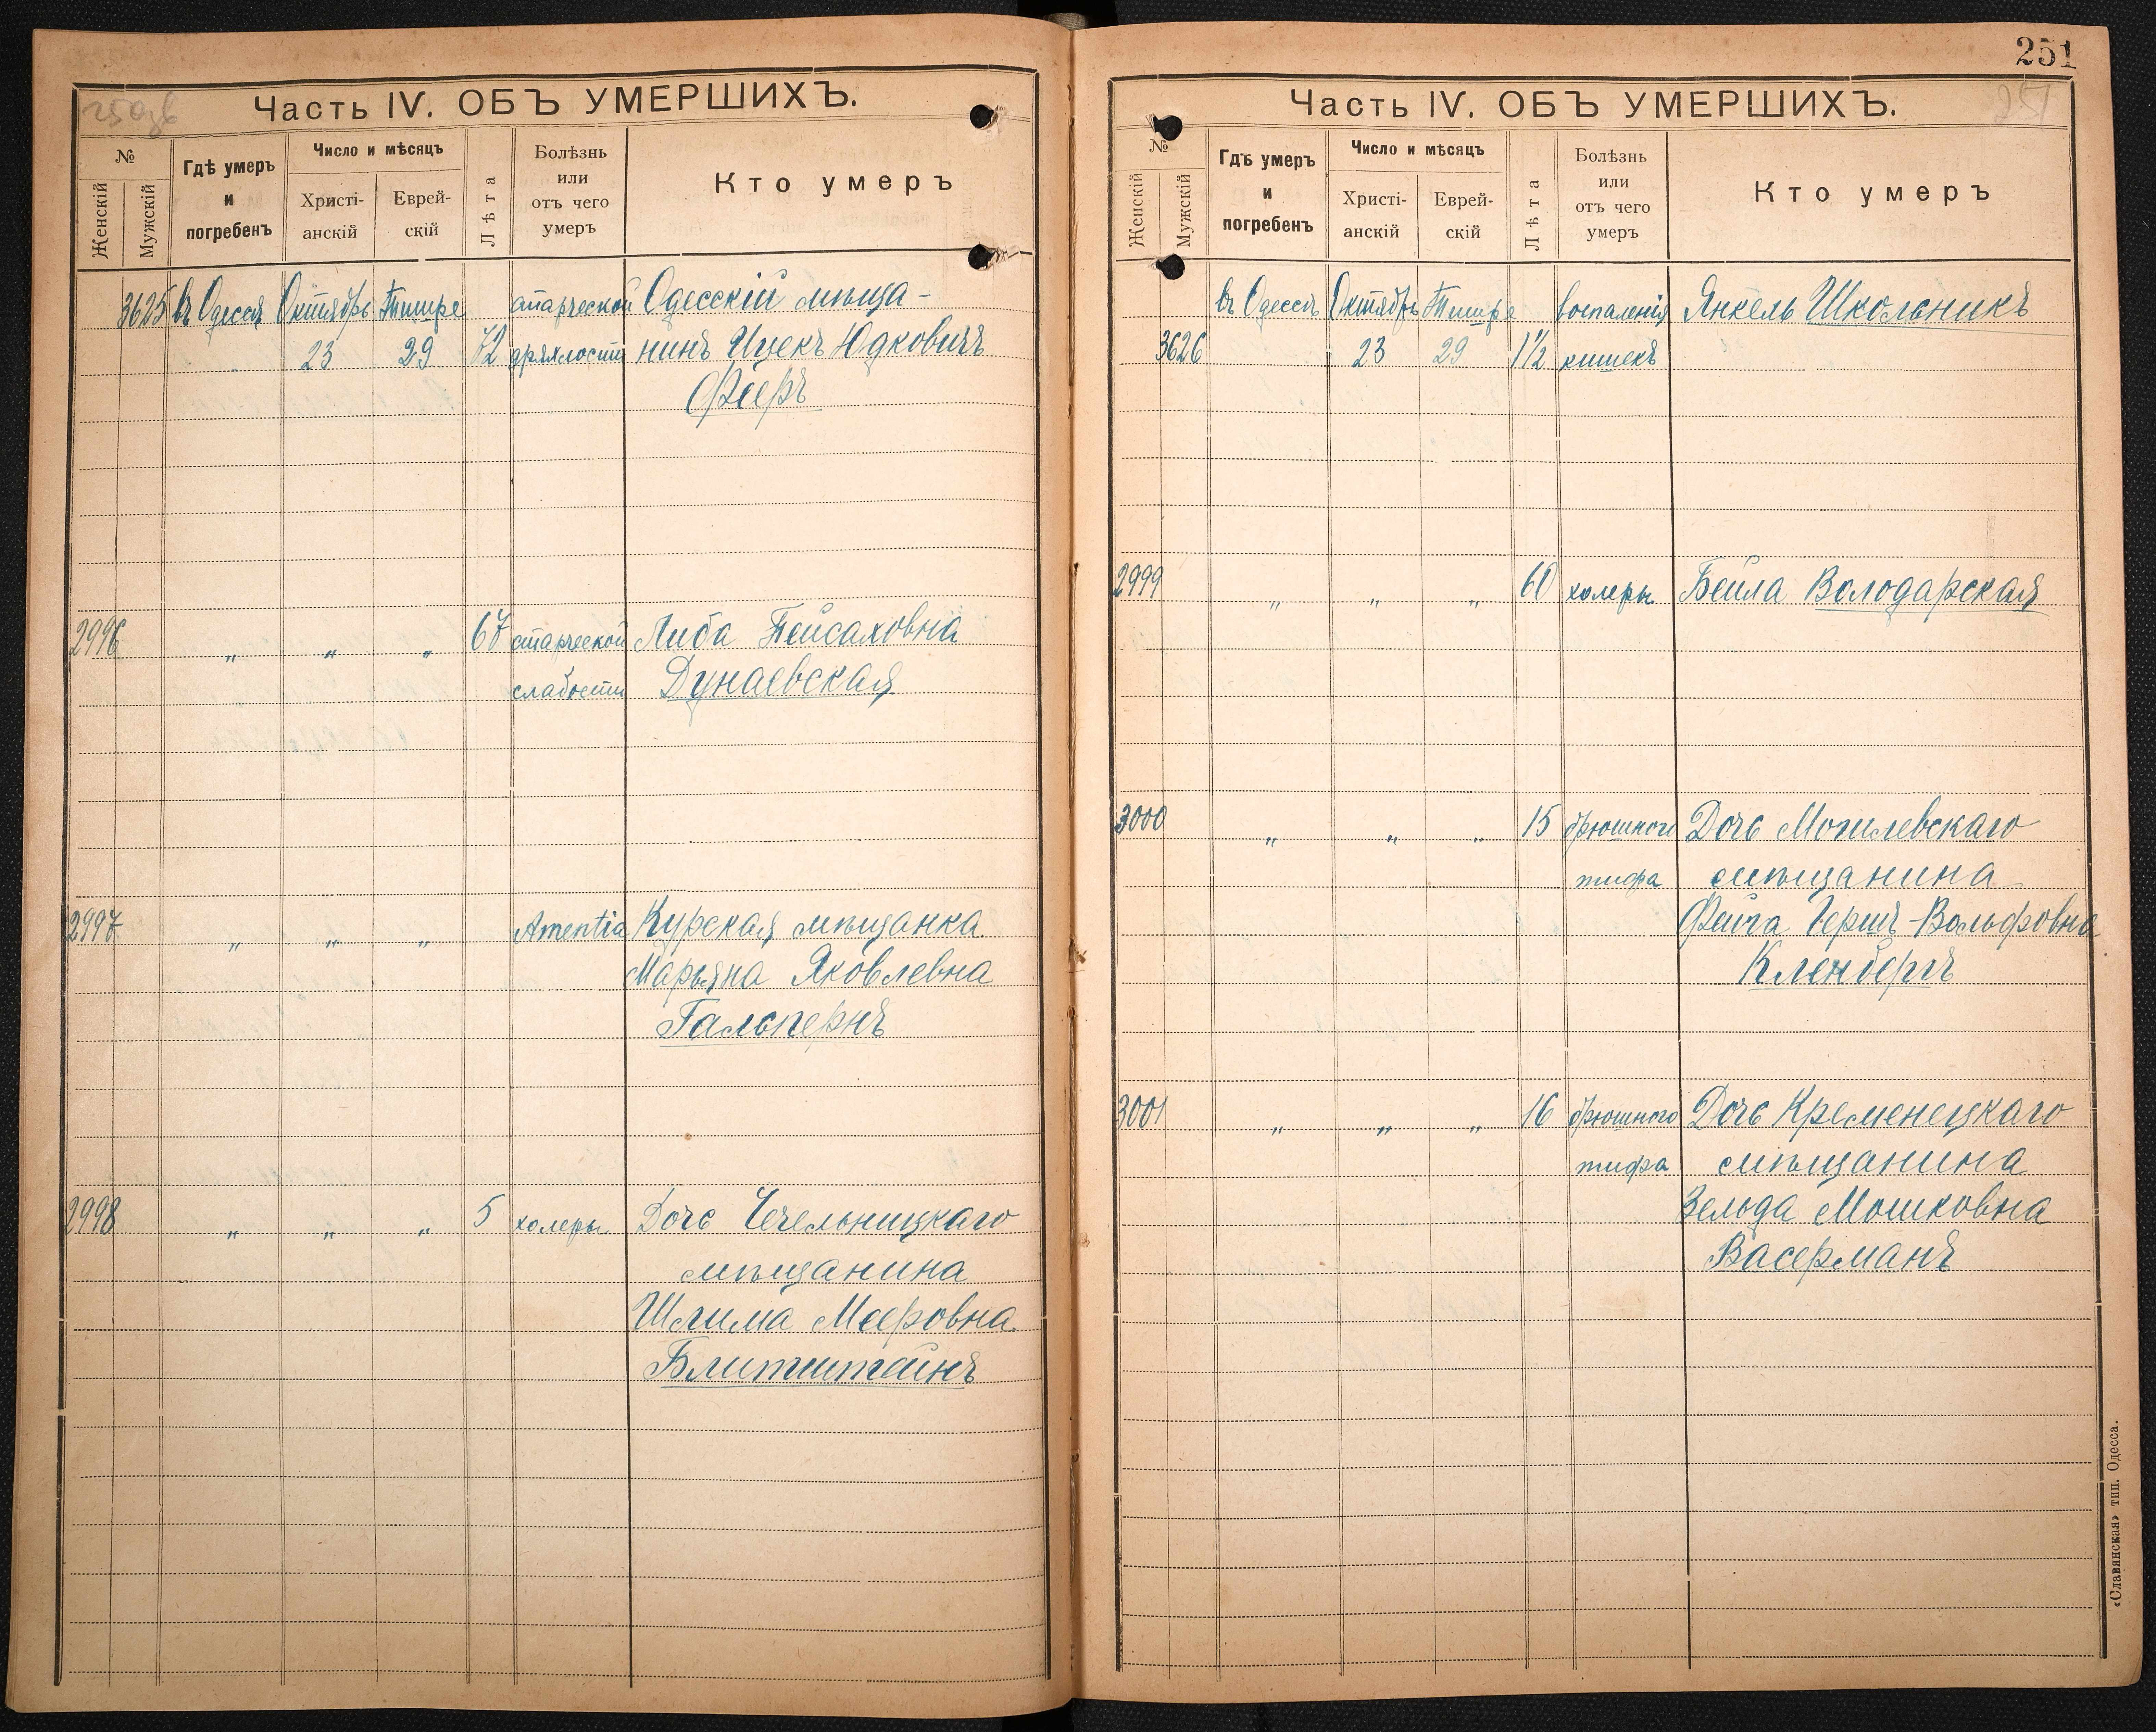 250 об
Часть IV. ОБЪ УМЕРШИХЪ.
№
Женскій
Мужскій
Гдѣ умеръ
и
погребенъ
Число и мѣсяцъ
Христі-
анскій
Еврей-
скій
Лѣта
Болѣзнь
или
отъ чего
умеръ
Кто умеръ
3625 въ Одессѣ Октябрь Тишре старческой Одесскій мѣща-
23 29 72 дряхлости нинъ Ицекъ Юдковичъ
Фееръ
2996 " " " 67 старческой Либа Пейсаховна
слабости Дунаевская
2997 " " " Amentia Курская мѣщанка
Марьяна Яковлевна
Гальпернъ
2998 " " " 5 холеры Дочь Чечельницкаго
мѣщанина
Шлима Мееровна
Блитштейнъ
251
251
Часть IV. ОБЪ УМЕРШИХЪ.
№
Женскій
Мужскій
Гдѣ умеръ
и
погребенъ
Число и мѣсяцъ
Христі-
анскій
Еврей-
скій
Лѣта
Болѣзнь
или
отъ чего
умеръ
Кто умеръ
въ Одессѣ Октябрь Тишре воспаленія Янкель Школьникъ
3626 23 29 1½ кишекъ
2999 " " " 60 холеры Бейла Володарская
3000 " " " 15 брюшного Дочь Могилевскаго
тифа мѣщанина
Фейга Герш-Вольфовна
Кленбергъ
3001 " " " 16 брюшного Дочь Кременецкаго
тифа мѣщанина
Зельда Мошковна
Васерманъ
«Славянская» тип. Одесса.